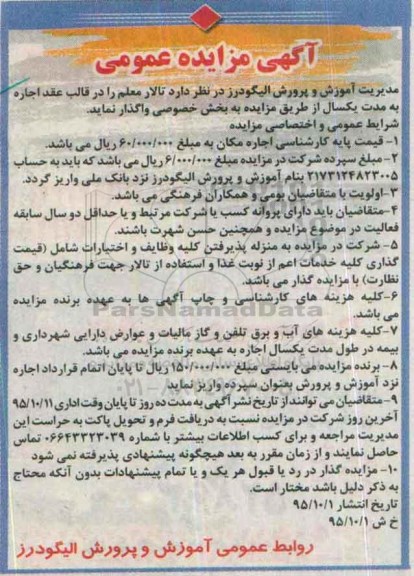 آگهی مزایده عمومی
مدیریت آموزش و پرورش الیگودرز در نظر دارد تالار معلم را در قالب عقد اجاره
به مدت یکسال از طریق مزایده به بخش خصوصی واگذار نماید.
شرایط عمومی و اختصاصی مزایده
۱- قیمت پایه کارشناسی اجاره مکان به مبلغ ۶۰/۰۰۰/۰۰۰ ریال می باشد.
۲- مبلغ سپرده شرکت در مزایده مبلغ ۶/۰۰۰/۰۰۰ ریال می باشد که باید به حساب
۲۱۷۳۱۲۴۸۲۳۰۰۵ بنام آموزش و پرورش الیگودرز نزد بانک ملی واریز گردد.
۳- اولویت با متقاضیان بومی و همکاران فرهنگی می باشد.
۴- متقاضیان باید دارای پروانه کسب یا شرکت مرتبط و یا حداقل دو سال سابقه
فعالیت در موضوع مزایده و همچنین حسن شهرت باشند.
۵- شرکت در مزایده به منزله پذیرفتن کلیه وظایف و اختیارات شامل (قیمت
گذاری کلیه خدمات اعم از نوبت غذا و استفاده از تالار جهت فرهنگیان و حق
نظارت) با مزایده گذار می باشد.
۶- کلیه هزینه های کارشناسی و چاپ آگهی ها به عهده برنده مزایده
می باشد.
ParsNamadData
۷- کلیه هزینه های آب و برق تلفن و گاز مالیات و عوارض دارایی شهرداری و
بیمه در طول مدت یکسال اجاره به عهده برنده مزایده می باشد.
۸- برنده مزایده می بایستی مبلغ ۱۵۰/۰۰۰/۰۰۰ ریال تا پایان اتمام قرارداد اجاره
نزد آموزش و پرورش بعنوان سپرده واریز نماید
۹- متقاضیان می توانند از تاریخ نشر آگهی به مدت ده روز تا پایان وقت اداری ۹۵/۱۰/۱۱
آخرین روز شرکت در مزایده نسبت به دریافت فرم و تحویل پاکت به حراست این
مدیریت مراجعه و برای کسب اطلاعات بیشتر با شماره ۰۶۶۴۳۳۲۳۰۳۹ تماس
حاصل نمایند و از زمان مقرر به بعد هیچگونه پیشنهادی پذیرفته نمی شود
۱۰- مزایده گذار در رد یا قبول هر یک و یا تمام پیشنهادات بدون آنکه محتاج
به ذکر دلیل باشد مختار است.
تاریخ انتشار ۹۵/۱۰/۱
خ ش ۹۵/۱۰/۱
روابط عمومی آموزش و پرورش الیگودرز